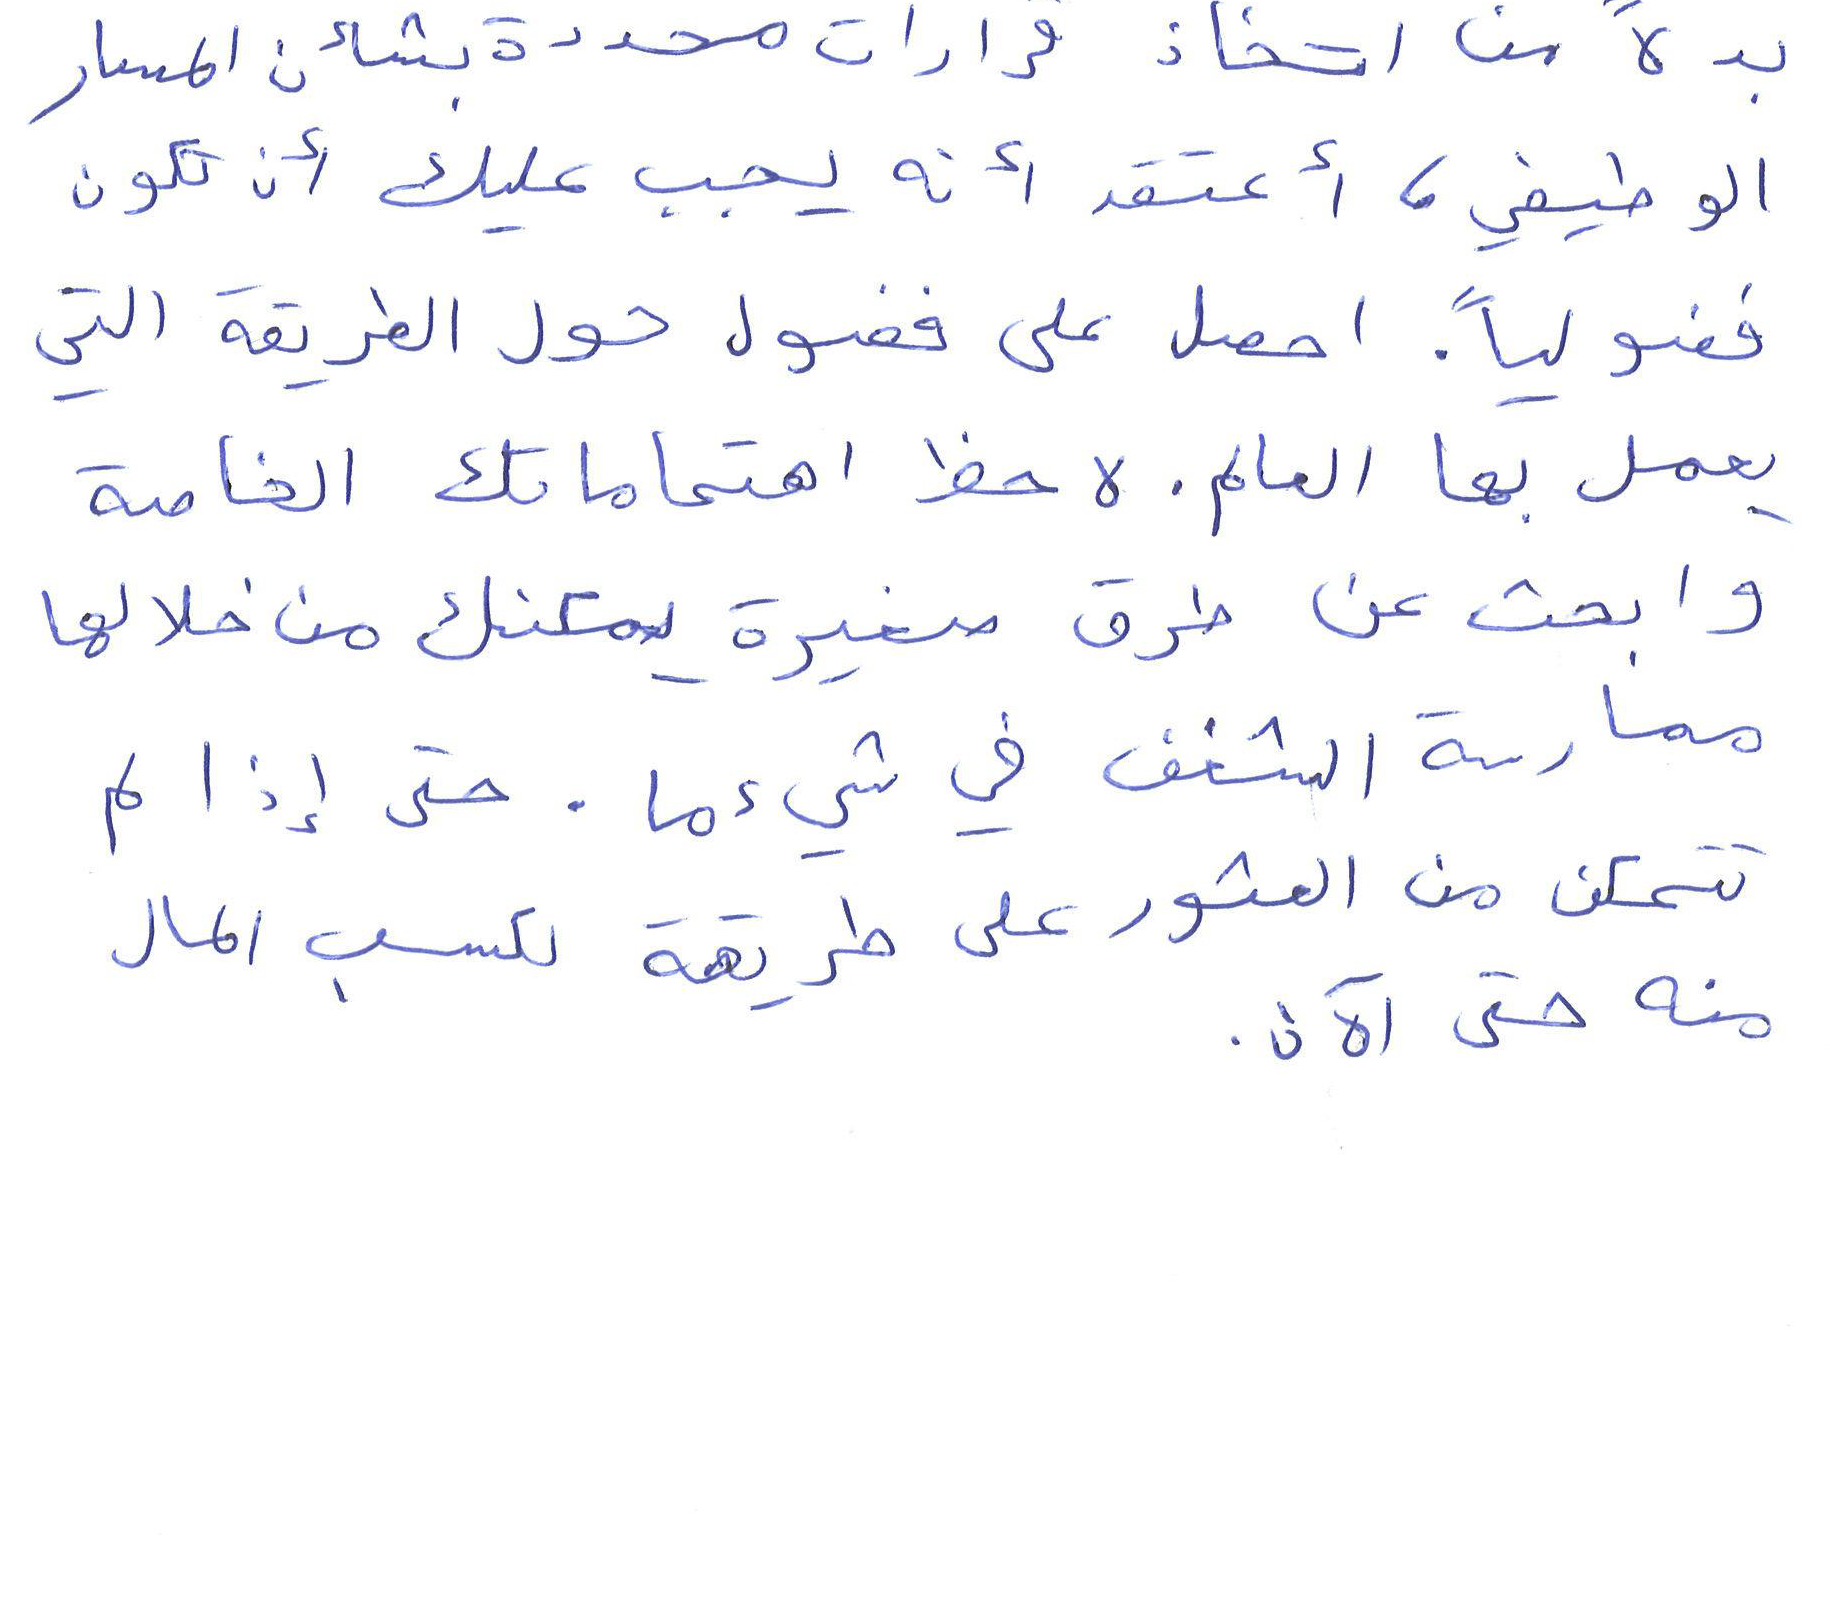 بدلاً من اتخاذ قرارات محددة بشأن المسار
الوظيفي، أعتقد أنه يجب عليك أن تكون
فضولياً. احصل على فضول حول الطريقة التي
يعمل بها العالم. لاحظ اهتماماتك الخاصة
وابحث عن طرق صغيرة يمكنك من خلالها
ممارسة الشغف في شيء ما. حتى إذا لم
تتمكن من العثور على طريقة لكسب المال
منه حتى الآن.